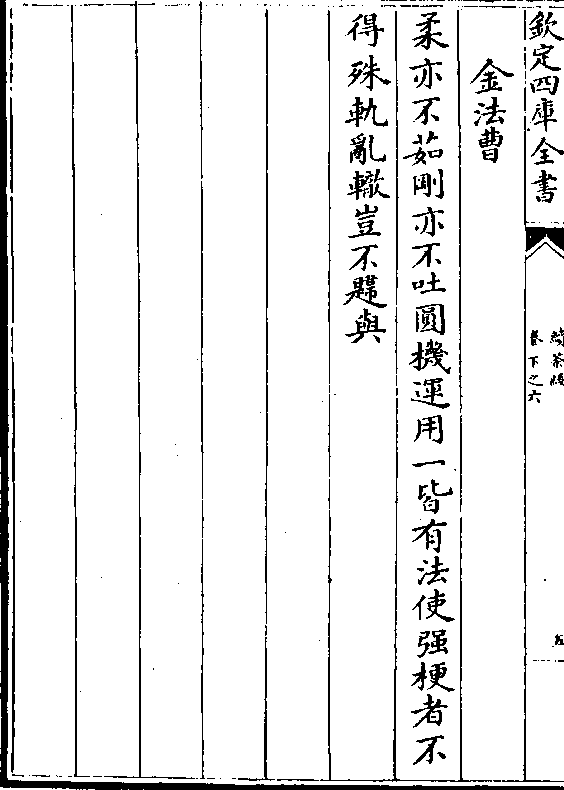 欽定四庫全書
續茶經
卷下之六
金法曹
柔亦不茹剛亦不吐圓機運用一皆有法使强梗者不
得殊軌亂轍豈不韙與